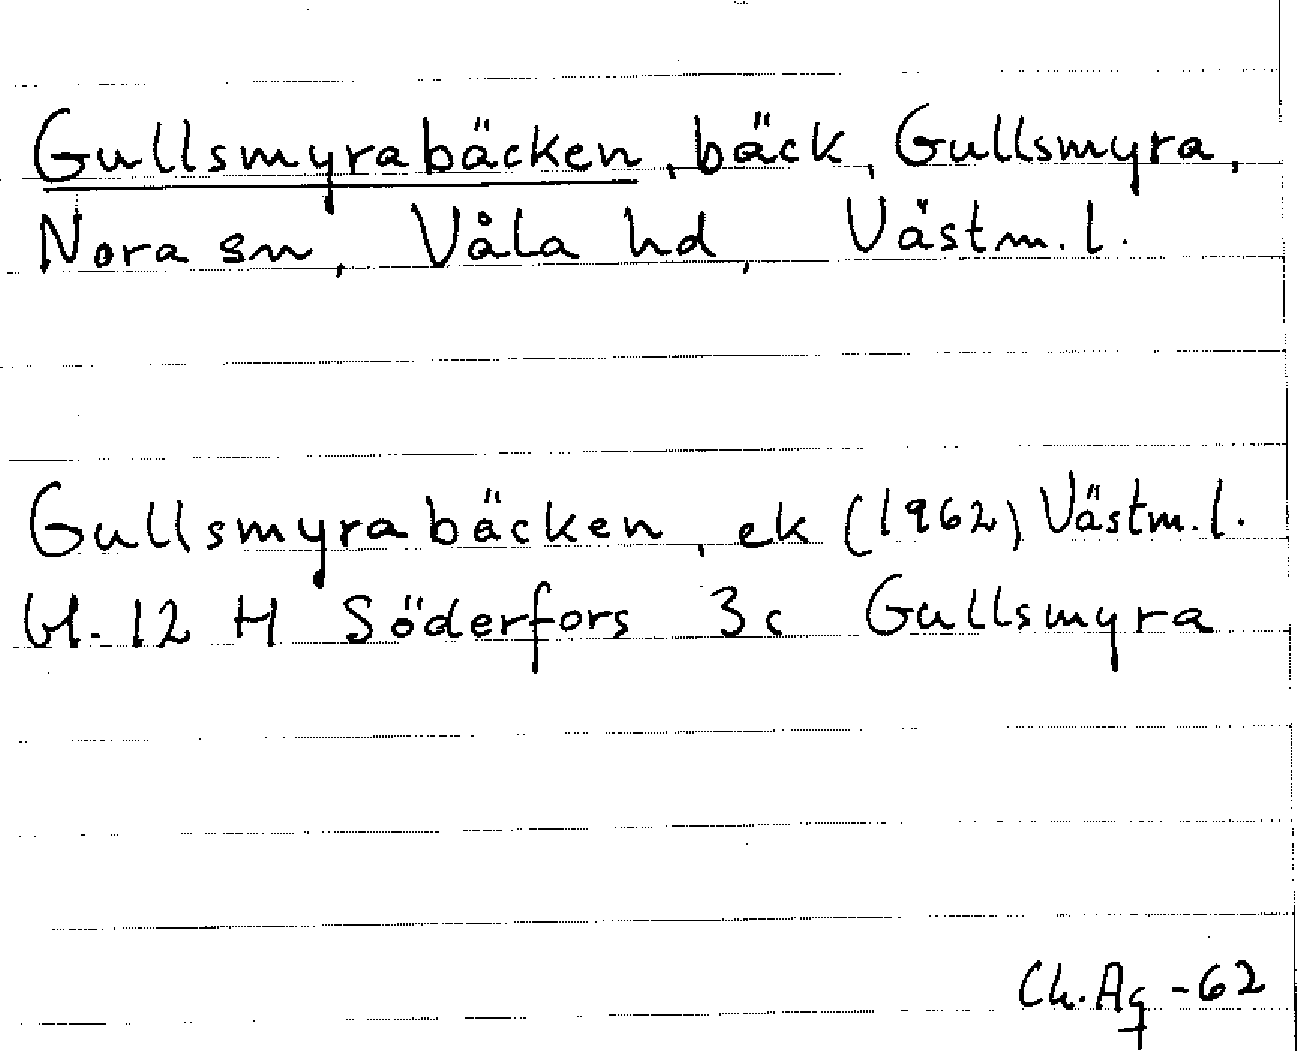 Gullsmyrabäcken, bäck, Gullsmyra,
Nora sn, Våla hd, Västm.l.
Gullsmyrabäcken, ek (1962) Västm.l.
bl. 12 H Söderfors 3c Gullsmyra
Ch.Ag -62